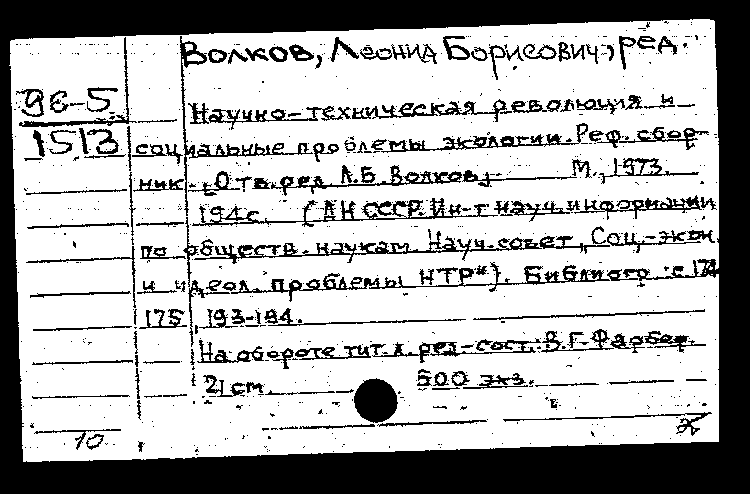 Волков, Леонид Борисович, ред.
96-5
1513
Научно-техническая революция и
социальные проблемы экологии. Реф. сбор-
ник. [Отв. ред. Л.Б. Волков]. М., 1973.
194 с. (АН СССР. Ин-т науч. информации
по обществ. наукам. Науч. совет „Соц.-экон.
и идеол. проблемы НТР"). Библиогр.: с.
175, 193-194.
На обороте тит. л. ред.-сост.: В.Г. Фарбер.
21 см. 500 экз.
10